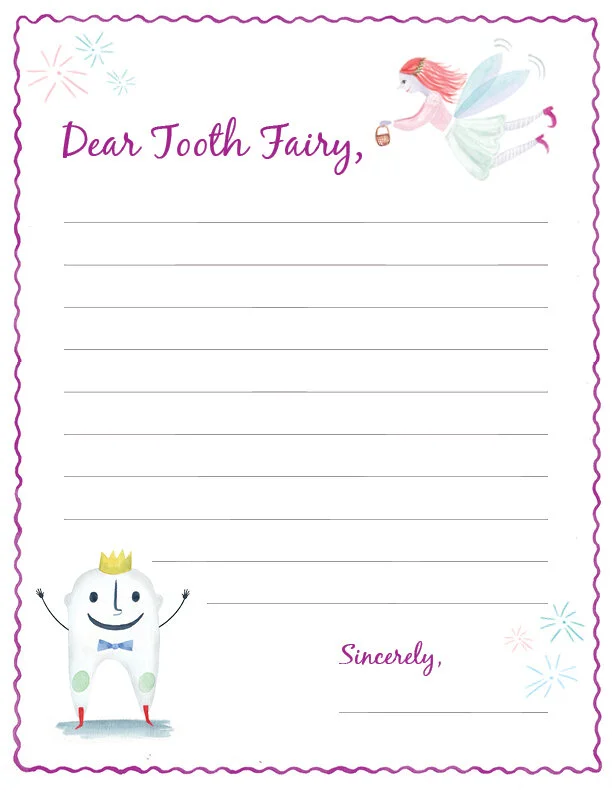 Dear Tooth Fairy,
Sincerely,